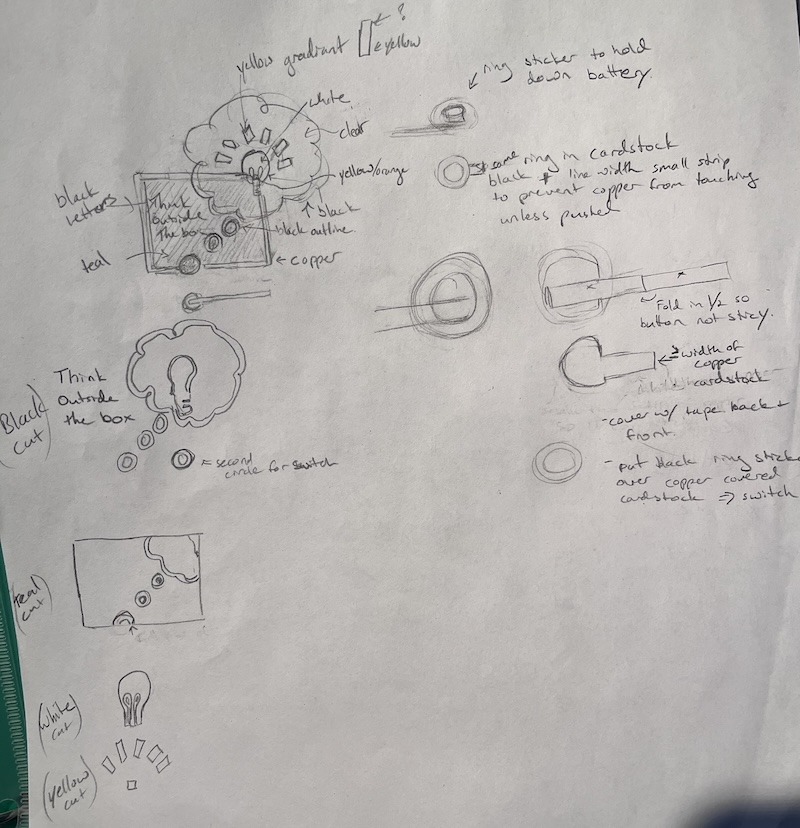 yellow gradiant
?
yellow
white
clear
yellow/orange
black
letters
Think
outside
The box
black
black outline
teal
copper
ring sticker to hold
down battery.
same ring in cardstock
black + line width small strip
to prevent copper from touching
unless pushed
Fold in 1/2 so
button not sticky.
≥ width of
copper
cardstock
-cover w/ tape back +
front.
-put black ring sticker
over copper covered
cardstock => switch
(Black
cut)
Think
Outside
the box
second
circle for switch
(teal
cut)
(white
cut)
(yellow
cut)